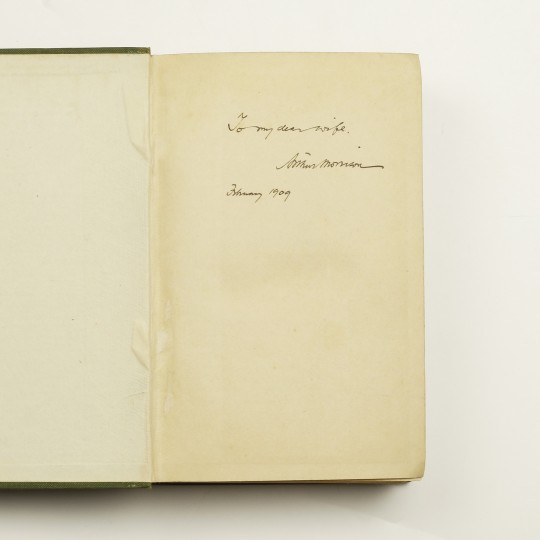 To my dear wife.
Arthur Morrison
February 1909